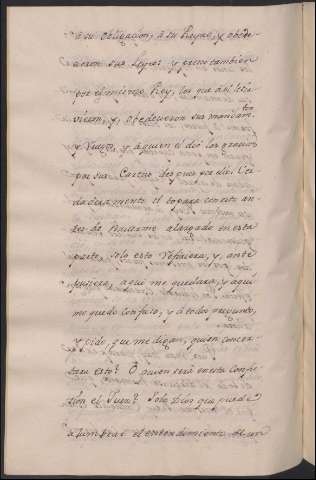 à su obligacion, à su Reyno, y obede-
cieron sus Leyes y premio tambien
por el mismo Rey, los que assi lo
y, obedecieron sus mandam.tos
y à quien el dió las gracias
por sus Cartas, despues por dia. Ver-
daderamente el topar con esto an-
tes de haverme alargado en esta
parte, solo esto refiriera, y, ante
fuisera, aqui me quedara, y aqui
me quedo confuso, y à todos pregunto,
y pido, que me digan, quien concer-
tara esto? O quien será en esta confu-
sion el Juez? Solo Dios que puede
alumbrar el entendimiento de un